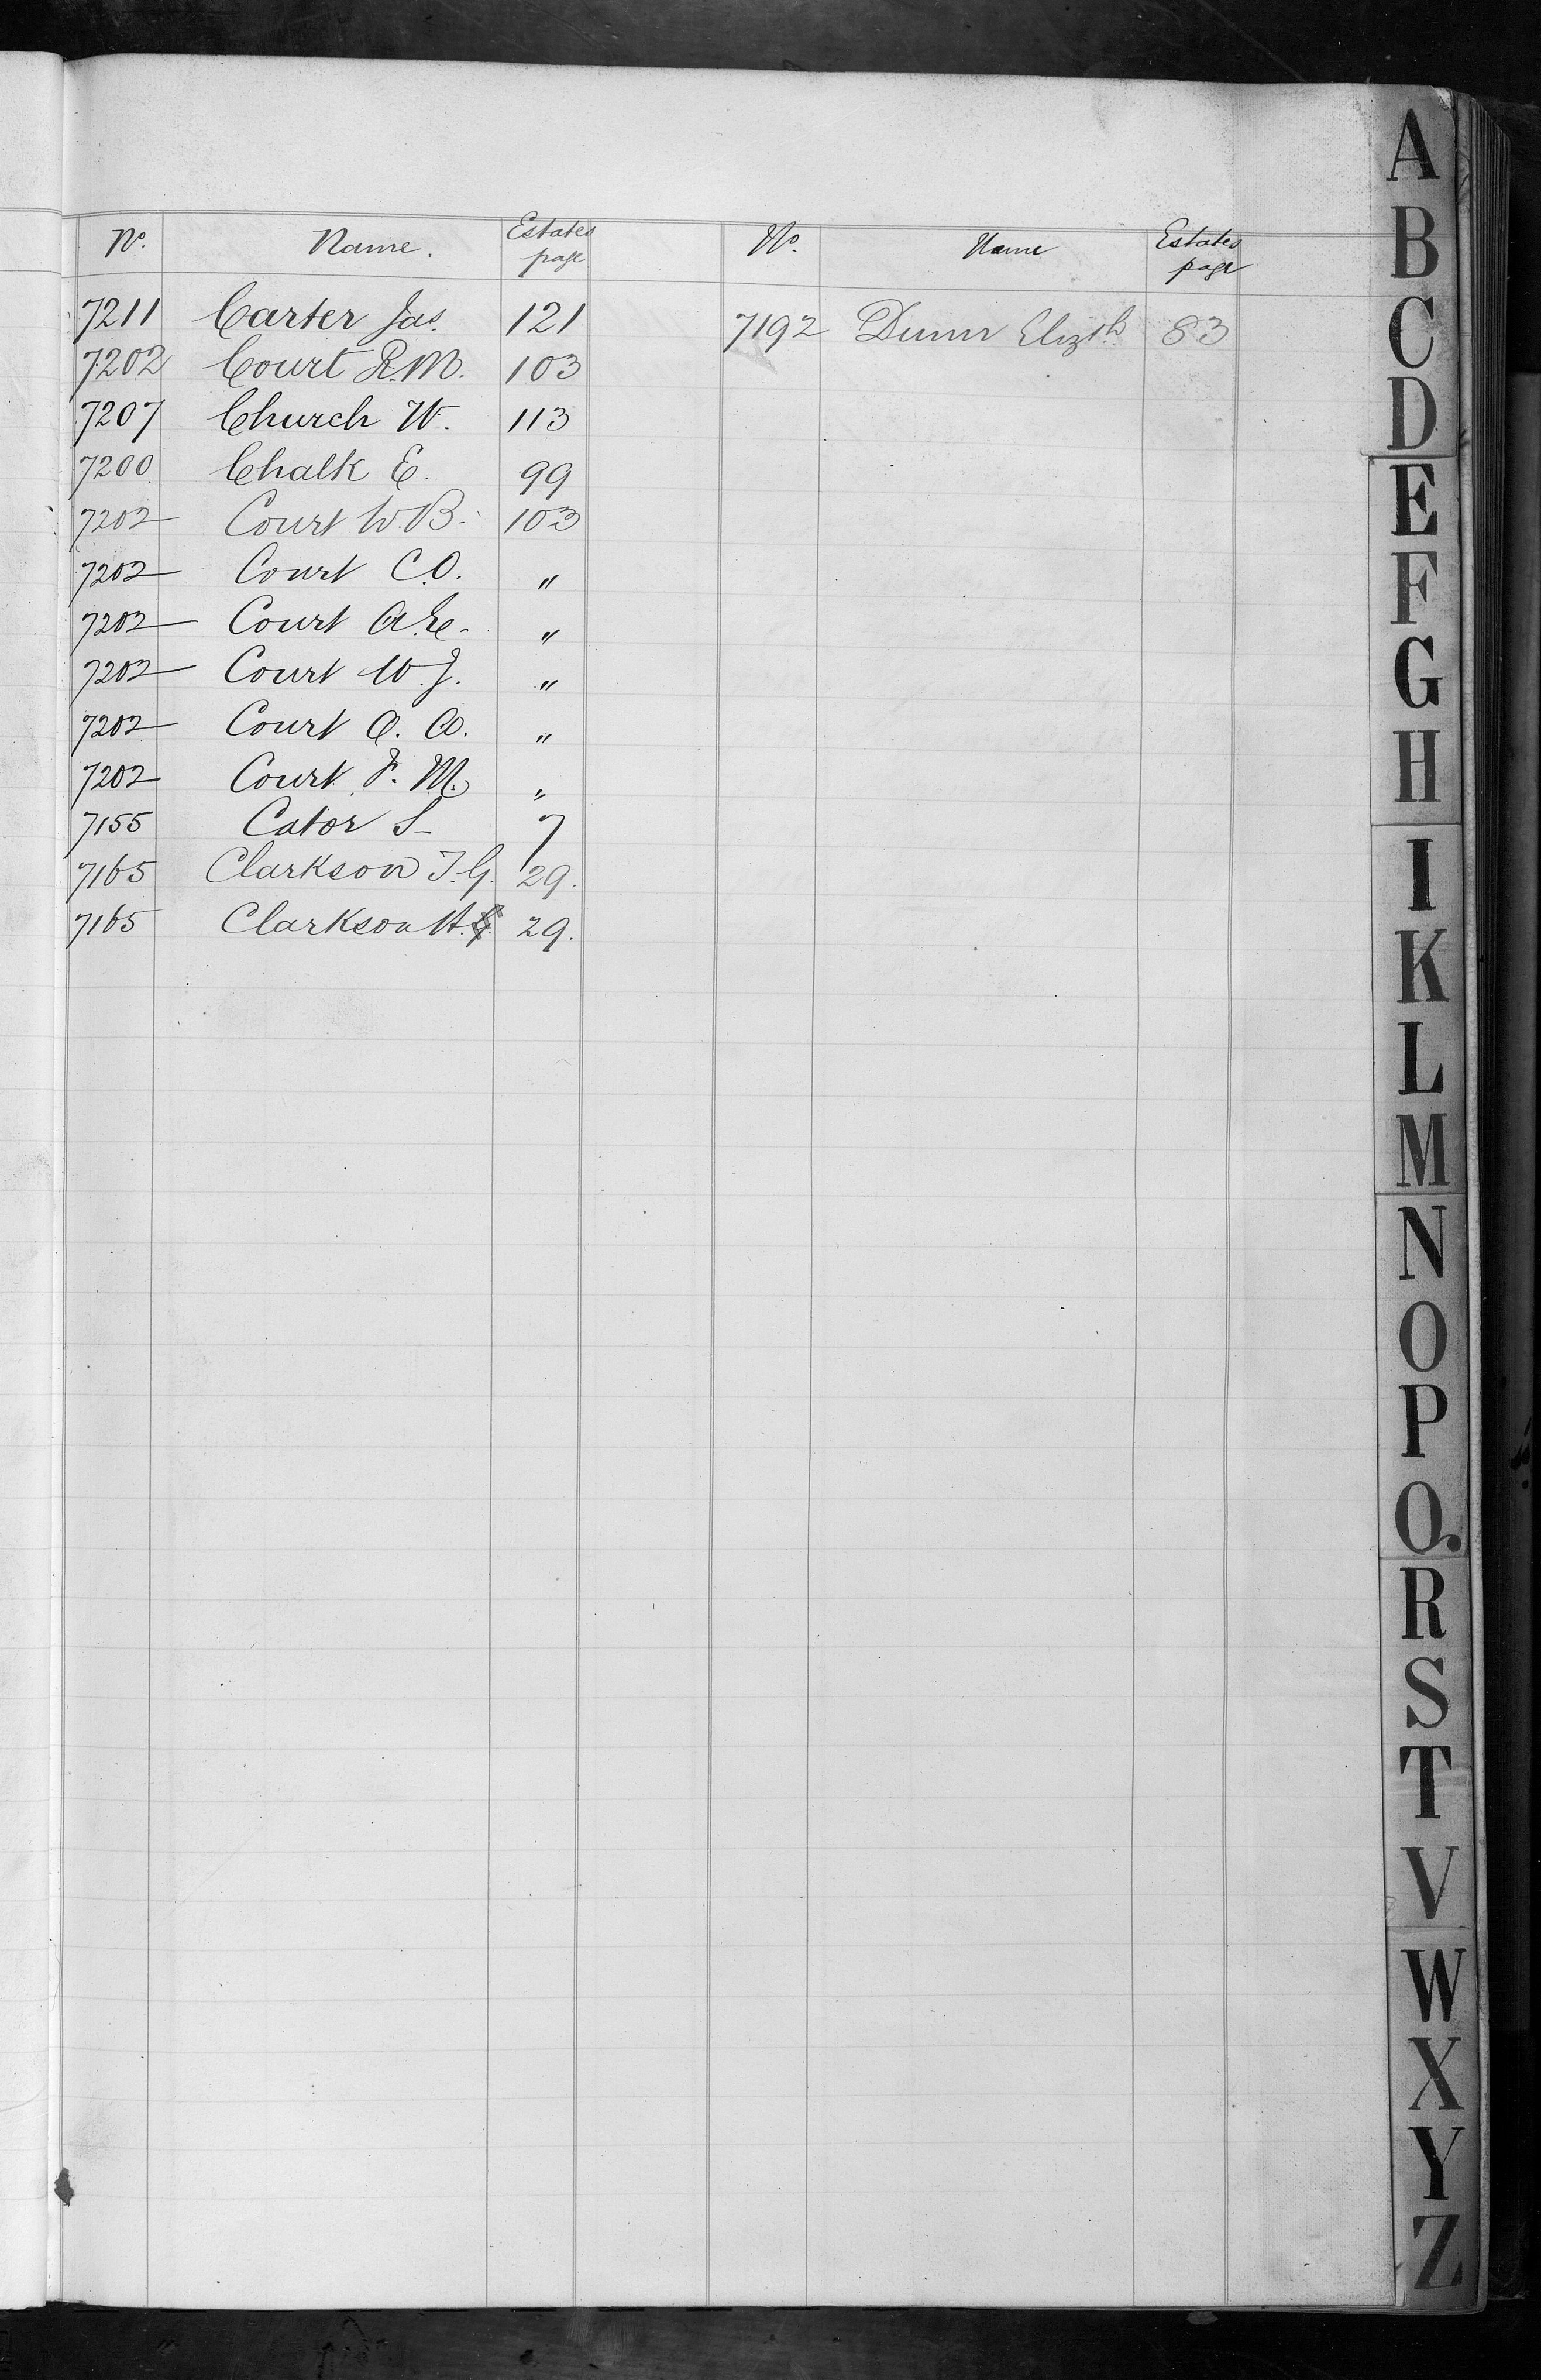 No. Name. Estates page
7211 Carter Jas. 121
7202 Court R.M. 103
7207 Church W. 113
7200 Chalk E. 99
7202 Court W.B. 103
7202 Court C.O. "
7202 Court A.E. "
7202 Court W.J. "
7202 Court "
7202 Court F.M. "
7155 Cator S 7
7165 Clarkson T.G. 29.
7165 Clarkson H. 29.
No. Name Estates page
7192 Dunn Elizth 83
A
B
C
D
E
F
G
H
I
K
L
M
N
O
P
Q.
R
S
T
V
W
X
Y
Z